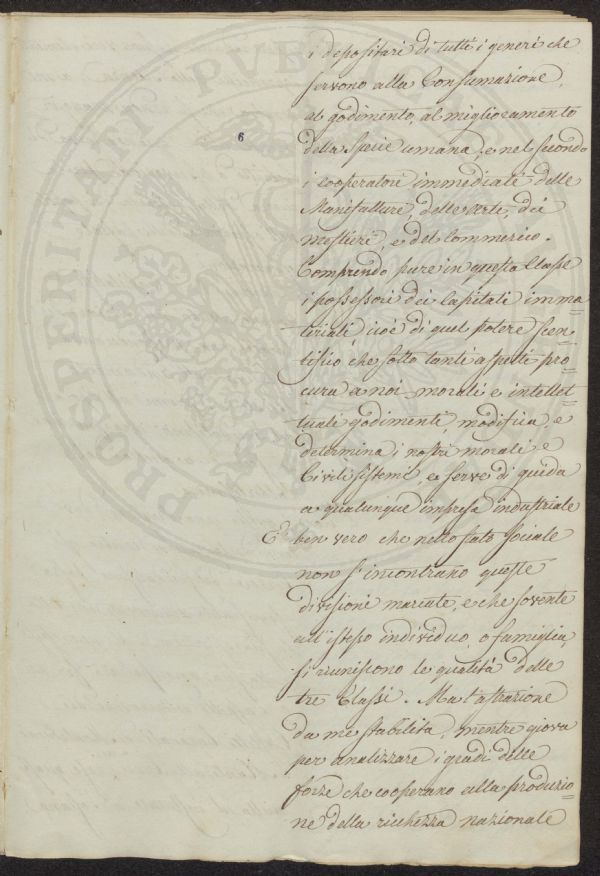 i depositari di tutti i generi che
servono alla Consumazione,
al godimento, al miglioramento
6
della Specie umana, e nel secondo
i cooperatori immediati delle
Manifatture, delle arti, dei
mestieri, e del Commercio.
Comprendo pure in questa Classe
i possessori dei Capitali imma=
teriali cioè di quel potere Scen=
tifico che sotto tanti aspetti pro=
cura a noi morali e intellet=
tuali godimenti, modifica, e
determina i nostri morali e
Civili sistemi, e serve di guida
a qualunque impresa industriale
E ben vero che nello stato sociale
non s'incontrano queste
divisioni marcate, e che sovente
all'istesso individuo, o famiglia,
si riuniscono le qualità delle
tre Classi. Ma l'astrazione
da me stabilita, mentre giova
per analizzare i gradi delle
forze che cooperano alla produzio=
ne della ricchezza nazionale
PROSPERITATI PUB